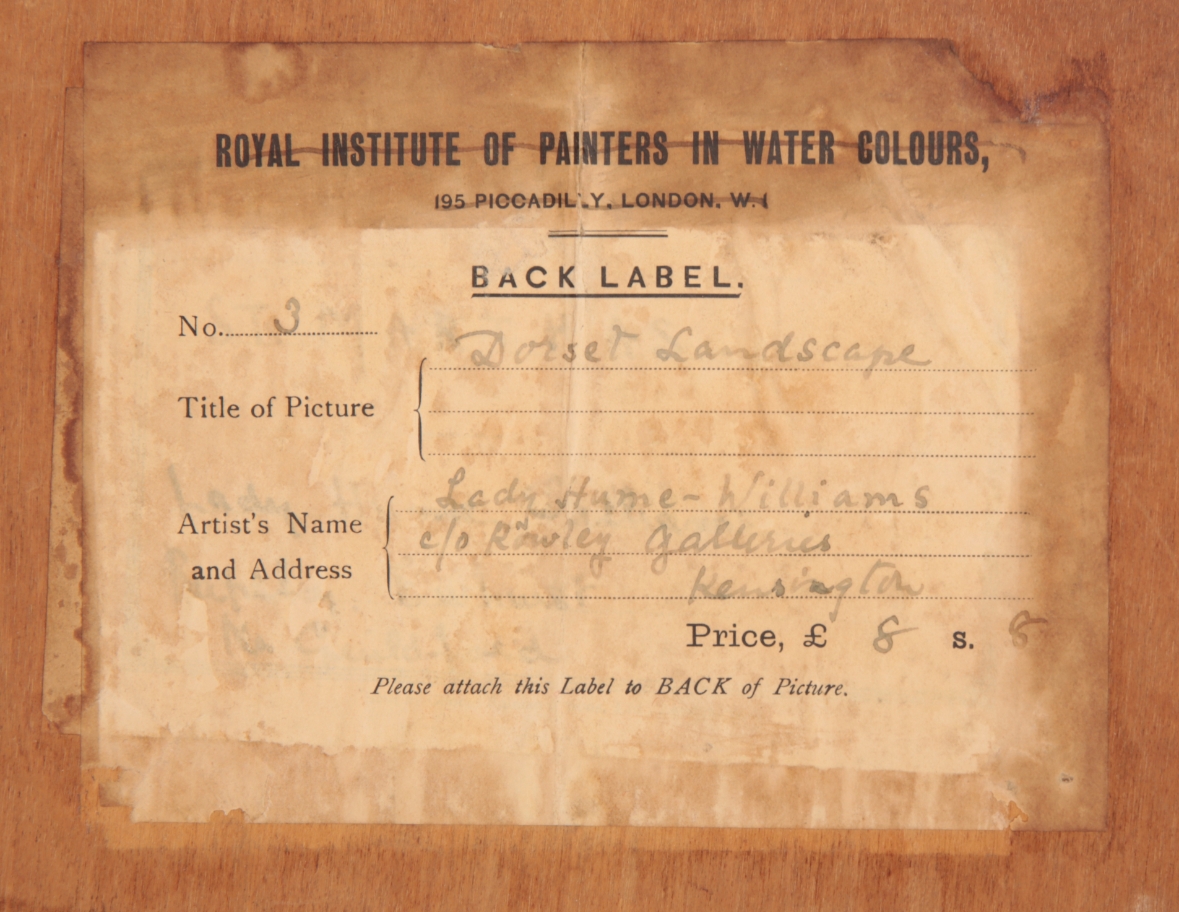 ROYAL INSTITUTE OF PAINTERS IN WATER COLOURS,
195 PICCADILLY, LONDON. W.1
BACK LABEL.
No. 3
Dorset Landscape
Title of Picture
Lady Hume-Williams
Artist's Name
c/o Rowley Galleries
and Address
Kensington
Price, £ 8 s. 8
Please attach this Label to BACK of Picture.